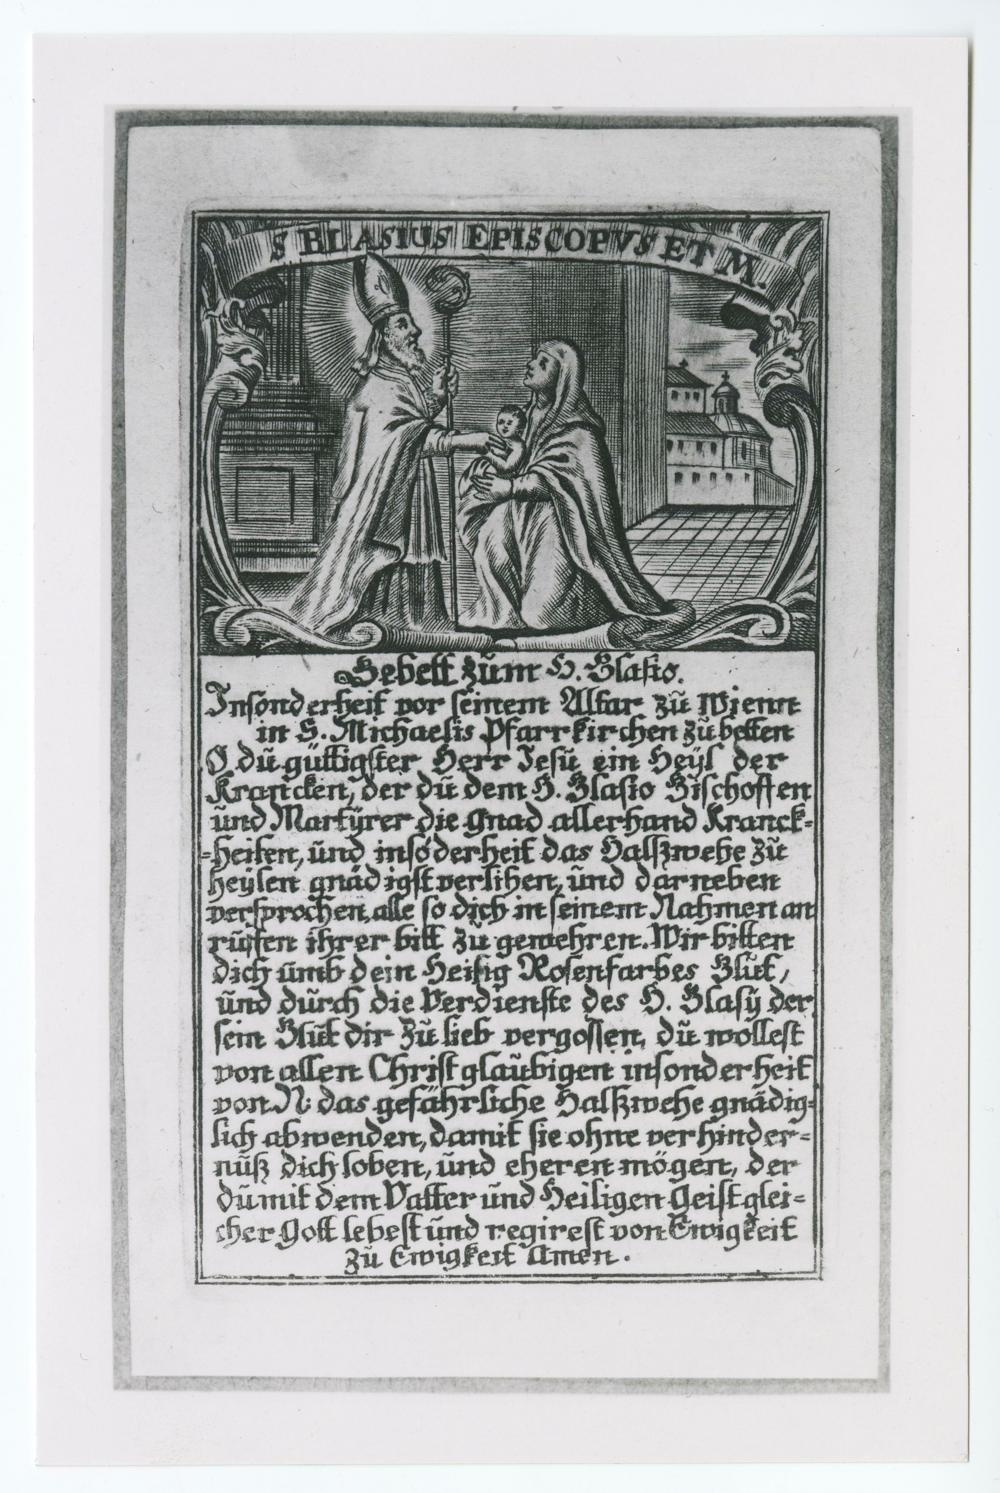 S BLASIUS EPISCOPVS ET M.
Gebett zům H. Blasio.
Jnsonderheit vor seinem Altar zů Wienn
in S. Michaelis Pfarrkirchen zů betten
O dů güttigster Herr Jesů ein Heÿl der
Krancken, der dů dem H. Blasio Bischoffen
ůnd Martÿrer die gnad allerhand Kranck=
=heiten, ůnd insōderheit das Halßwehe zů
heÿlen gnädigst verlihen, ůnd darneben
versprochen, alle so dich in seinem Nahmen an
růffen ihrer bitt zů gewehren. Wir bitten
dich ůmb dein Heilig Rosenfarbes Blůt,
ůnd důrch die Verdienste des H. Blasÿ der
sein Blůt dir zů lieb vergossen, dů wollest
von allen Christglaůbigen insonderheit
von N: das gefährliche Halßwehe gnädig=
lich abwenden, damit sie ohne verhinder=
nůß dich loben, ůnd eheren mögen, der
dů mit dem Vatter ůnd Heiligen Geist glei=
cher Gott lebest ůnd regirest von Ewigkeit
zů Ewigkeit Amen.